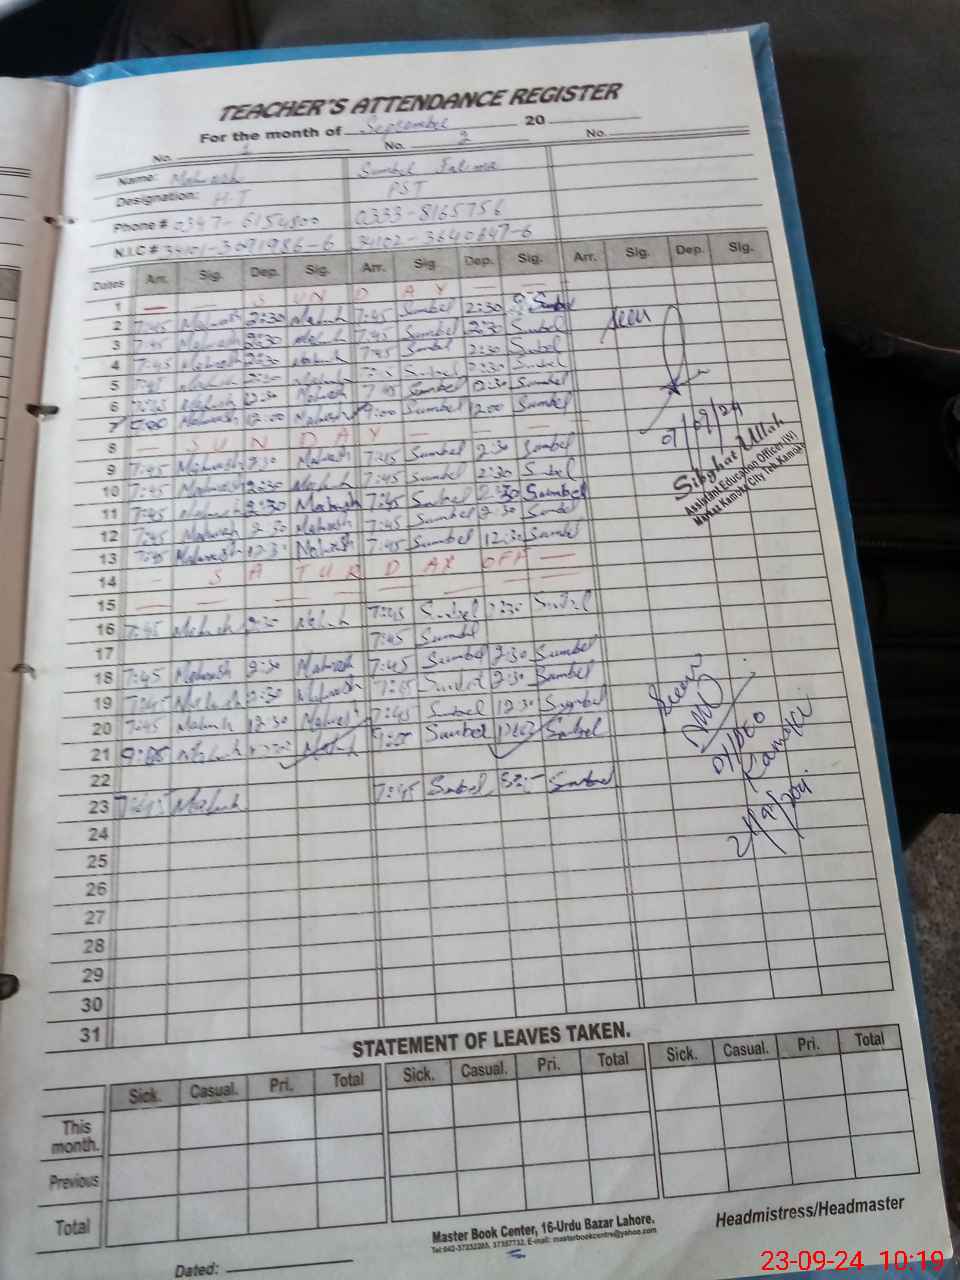 TEACHER'S ATTENDANCE REGISTER
For the month of September 20
No. 1 No. 2 No.
Name: Mahwash Sumbel Fatima
Designation: H.T PST
Phone # 0347-6154800 0333-8165756
N.I.C # 34101-3691986-6 34102-3640647-6
Dates Arr. Sig. Dep. Sig. Arr. Sig. Dep. Sig. Arr. Sig. Dep. Sig.
1 — — S UN D A Y — —
2 7:45 Mahwash 2:30 Mahwash 7:45 Sumbel 2:30 Sumbel
3 7:45 Mahwash 2:30 Mahwash 7:45 Sumbel 2:30 Sumbel
4 7:45 Mahwash 2:30 Mahwash 7:45 Sumbel 2:30 Sumbel
5 7:45 Mahwash 2:30 Mahwash 7:45 Sumbel 2:30 Sumbel
6 7:45 Mahwash 12:30 Mahwash 7:45 Sumbel 12:30 Sumbel
7 9:00 Mahwash 12:00 Mahwash 9:00 Sumbel 12:00 Sumbel
8 — S U N D A Y — — — —
9 7:45 Mahwash 2:30 Mahwash 7:45 Sumbel 2:30 Sumbel
10 7:45 Mahwash 2:30 Mahwash 7:45 Sumbel 2:30 Sumbel
11 7:45 Mahwash 2:30 Mahwash 7:45 Sumbel 2:30 Sumbel
12 7:45 Mahwash 2:30 Mahwash 7:45 Sumbel 2:30 Sumbel
13 7:45 Mahwash 12:30 Mahwash 7:45 Sumbel 12:30 Sumbel
14 — S A T U R D AY OFF —
15 — — — — — — — —
16 7:45 Mahwash 2:30 Mahwash 7:45 Sumbel 2:30 Sumbel
17 7:45 Sumbel
18 7:45 Mahwash 2:30 Mahwash 7:45 Sumbel 2:30 Sumbel
19 7:45 Mahwash 2:30 Mahwash 7:45 Sumbel 2:30 Sumbel
20 7:45 Mahwash 12:30 Mahwash 7:45 Sumbel 12:30 Sumbel
21 9:00 Mahwash Mahwash 9:00 Sumbel Sumbel
22
23 7:45 Mahwash 7:45 Sumbel Sumbel
24
25
26
27
28
29
30
31
Seen
07/09/24
Sibghat Ullah
Assistant Education Officer (W)
Markaz Kamoke City Teh. Kamoke
Seen
Kamoke
STATEMENT OF LEAVES TAKEN.
Sick. Casual. Pri. Total Sick. Casual. Pri. Total Sick. Casual. Pri. Total
This month.
Previous
Total
Master Book Center, 16-Urdu Bazar Lahore.
Headmistress/Headmaster
Dated:
23-09-24 10:19